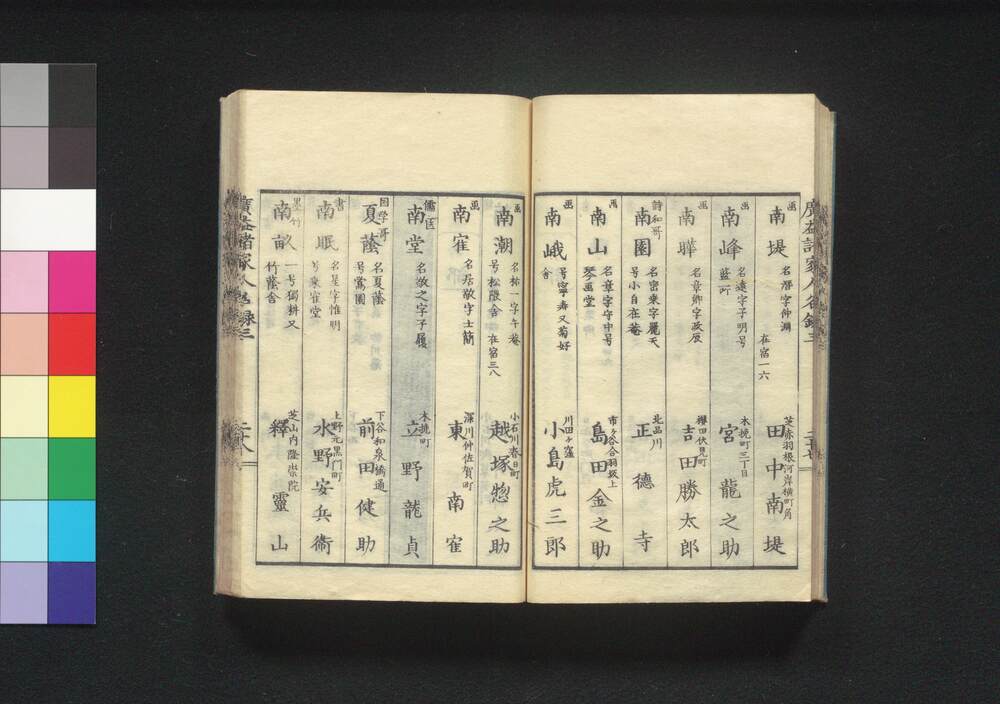 画 南堤 名暦字仲淵 在宿一六 芝赤羽根河岸横町角 田中南堤
画 南峰 名遠字子明号藍所 木挽町三丁目 宮龍之助
画 南曄 名章卿字政辰 桜田伏見町 吉田勝太郎
詩和哥 南園 名密乗字麗天号小自在菴 北品川 正徳寺
画 南山 名章字守中号琴画堂 市ヶ谷合羽坂上 島田金之助
画 南峨 号寧寿又菊好舎 川田ヶ窪 小島虎三郎
画 南潮 名祐一字午菴号松隠舎 在宿三八 小石川春日町 越塚惣之助
画 南寉 名居敬字士簡 深川仲佐賀町 東南寉
儒医 南堂 名敬之字子履 木挽町 立野龍貞
国学哥 夏蔭 名夏蔭号鶯園 下谷和泉橋通 前田健助
書 南眠 名星字惟明号米寉堂 上野元黒門町 水野安兵衛
墨竹 南畝 一号獨耕又竹蔭舎 芝山内隆崇院 釋靈山
二十八